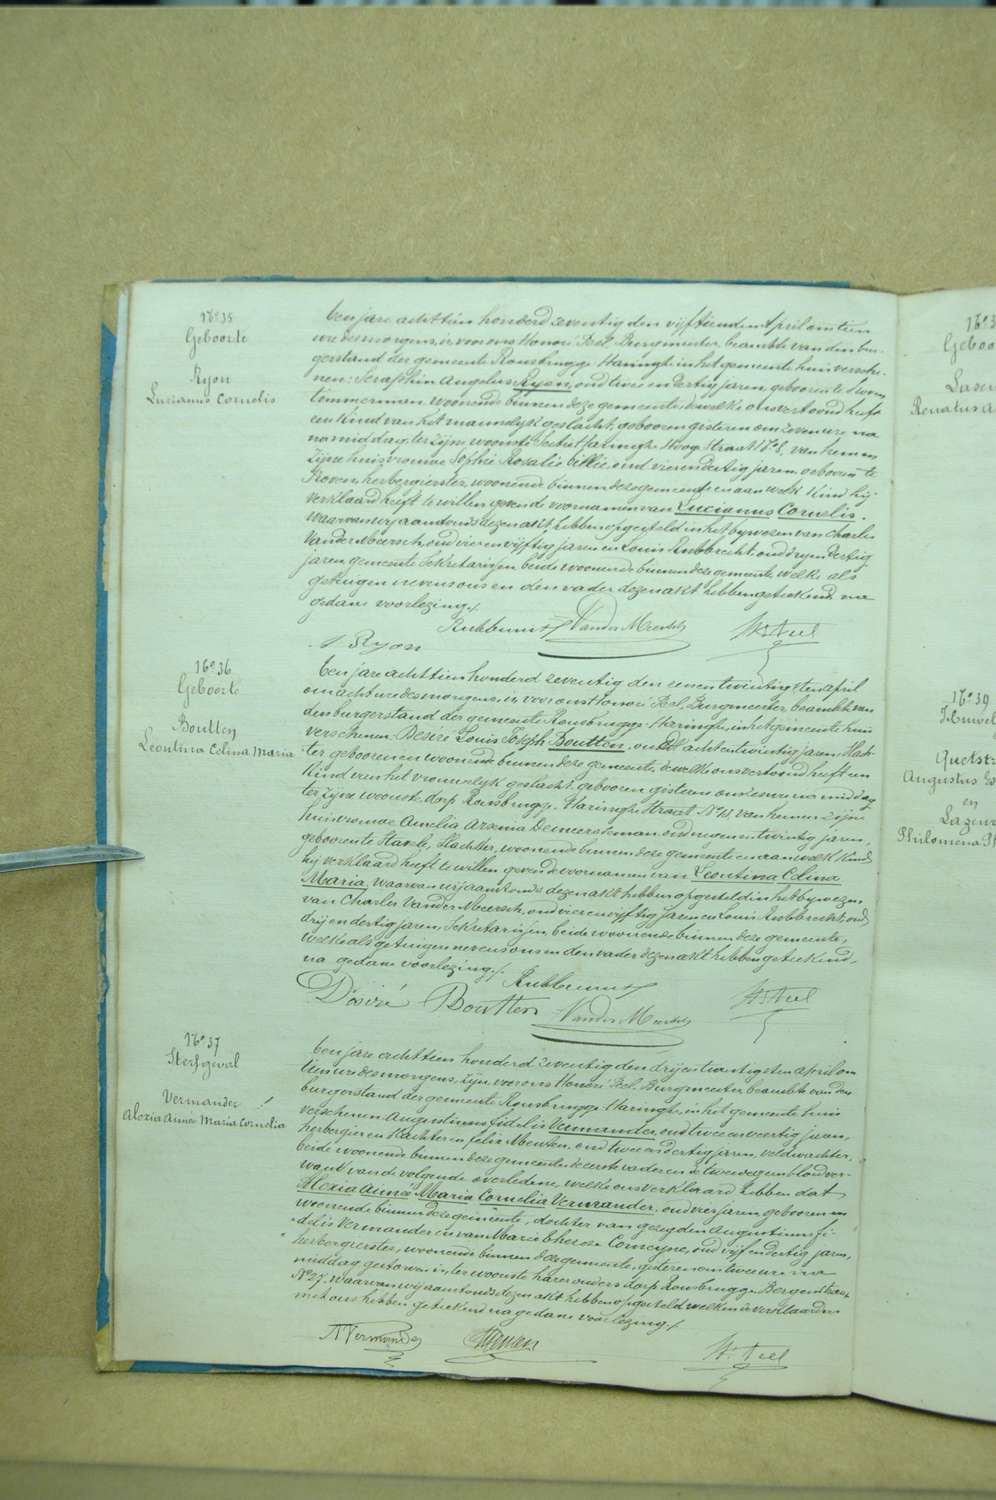 N° 35
Geboorte
Ryon
Lucianus Cornelis
Een jare achttien honderd zeventig den vijftienden April om tien
ure des morgens, is voor ons Honoré Feel, Burgmeester, beambte van den bur-
gerstand der gemeente Rousbrugge-Haringhe in het gemeente huis versche-
nen: Seraphin Angelus Ryon, oud twee en dertig jaren, geboren te
timmerman, woonende binnen deze gemeente, dewelke ons vertoond heeft
een kind van het mannelijk geslacht, geboren gisteren om zeven ure na
noenmiddag, ter zijne woonste Haringhe Hoog Straat N° 5, van hem en
zijne huisvrouw Sophie Rosalie Billiet, oud vier en dertig jaren, geboren te
Proven, herbergierster, woonende binnen deze gemeente en aan welk kind hij
verklaard heeft te willen geven de voornamen van Lucianus Cornelis.
waarvan wij aanstonds dezen akt hebben opgesteld in het bijwezen van Charles
Vander Meersch, oud vier en vijftig jaren en Louis Rubbrecht, oud drij en dertig
jaren, gemeente Sekretaris, beide woonende binnen deze gemeente, welke als
getuigen nevens ons en den vader dezen akt hebben geteekend na
gedane voorlezing./.
Rubbrecht Vander Meersch
S. Ryon
N° 36
Geboorte
Boutten
Leontina Celina Maria
Een jare achttien honderd zeventig den eenentwintigsten April
om acht ure des morgens, is voor ons Honoré Feel, Burgmeester, beambte van
den burgerstand der gemeente Rousbrugge-Haringhe, in het gemeente huis
verschenen: Desiré Louis Joseph Boutten, oud acht en twintig jaren, slach-
ter, geboren en woonende binnen deze gemeente, dewelke ons vertoond heeft een
kind van het vrouwelijk geslacht, geboren gisteren om zeven ure na middag
ter zijne woonste, dorp Rousbrugge, Haringhe Straat N° van hem en zijne
huisvrouw Amelia Arsenia Demeersteman, oud negen en twintig jaren,
geboren te Stavele, slachter, woonende binnen deze gemeente en aan welk kind
hij verklaard heeft te willen geven de voornamen van Leontina Celina
Maria, waarvan wij aanstonds dezen akt hebben opgesteld in het bijwezen
van Charles Vander Meersch, oud vier en vijftig jaren en Louis Rubbrecht, oud
drij en dertig jaren, Sekretaris, beide woonende binnen deze gemeente,
welke als getuigen nevens ons en den vader dezen akt hebben geteekend,
na gedane voorlezing./.
Rubbrecht
Désiré Boutten Vander Meersch
N° 37
Sterfgeval
Vermander
Alexia Anna Maria Cornelia
Een jare achttien honderd zeventig den drij en twintigsten April om
tien ure des morgens, zijn voor ons Honoré Feel, Burgmeester, beambte van den
burgerstand der gemeente Rousbrugge-Haringhe, in het gemeente huis
verschenen Augustinus Fidelis Vermander, oud twee en veertig jaren,
herbergier en slachter en Felix Meuwen, oud twee en dertig jaren, veldwachter,
beide woonende binnen deze gemeente, de eerste vader en de tweede geen bloedver-
want van de volgende overledene, welke ons verklaard hebben dat
Alexia Anna Maria Cornelia Vermander, oud vier jaren, geboren en
woonende binnen deze gemeente, dochter van gezegden Augustinus Fi-
delis Vermander en van Marie Therese Comeyne, oud vijf en dertig jaren,
herbergierster, woonende binnen deze gemeente, gisteren om twee ure na
middag gestorven is, ter woonste harer ouders, dorp Rousbrugge, Bergen Straat
N° 27. waarvan wij aanstonds dezen akt hebben opgesteld welken de verklaarders
met ons hebben geteekend na gedane voorlezing./.
A Vermander
N° 39
Augustus
en
Philomena